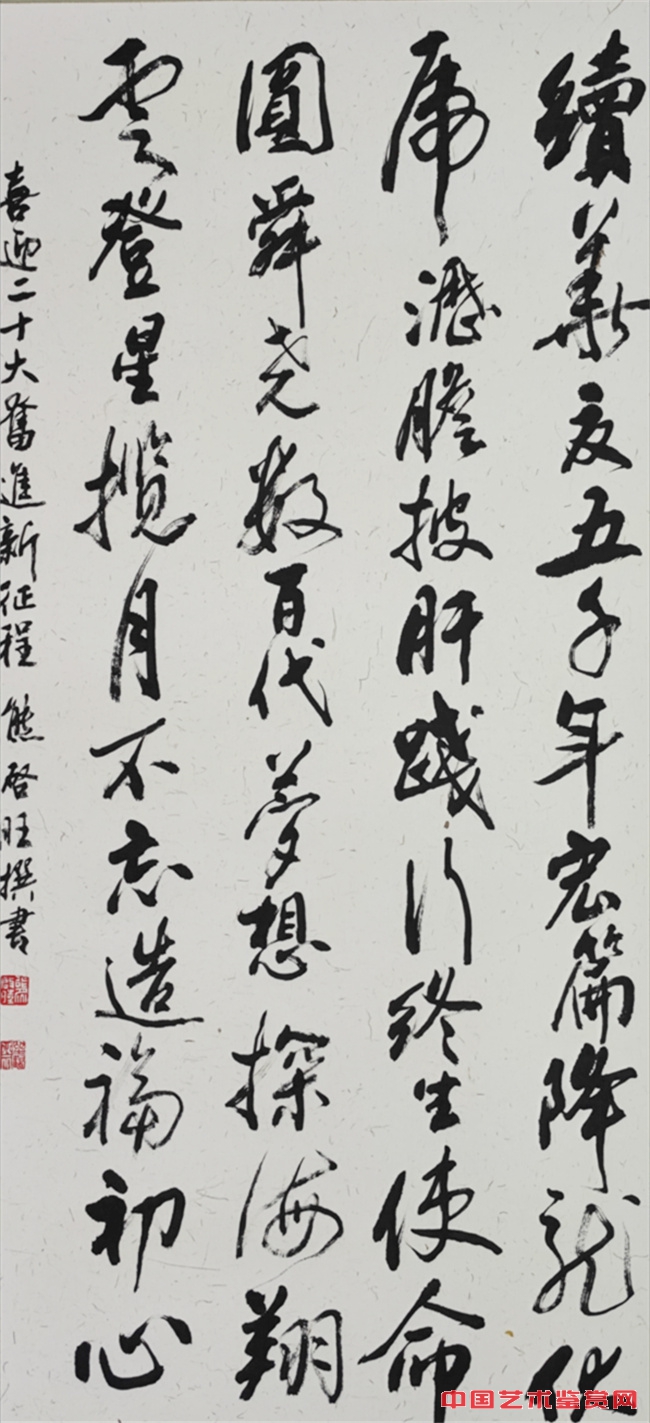 續華夏五千年宏篇降龍伏
虎瀝膽披肝踐行終生使命
圓舜尧數百代夢想探海翔
雲登星揽月不忘造福初心
喜迎二十大奮進新征程 熊啓旺撰書
中国艺术鉴赏网